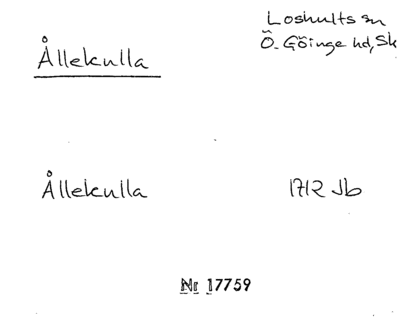 Ållekulla
Loshults sn
Ö. Göinge hd, Sk
Ållekulla
1712 Jb
Nr 17759